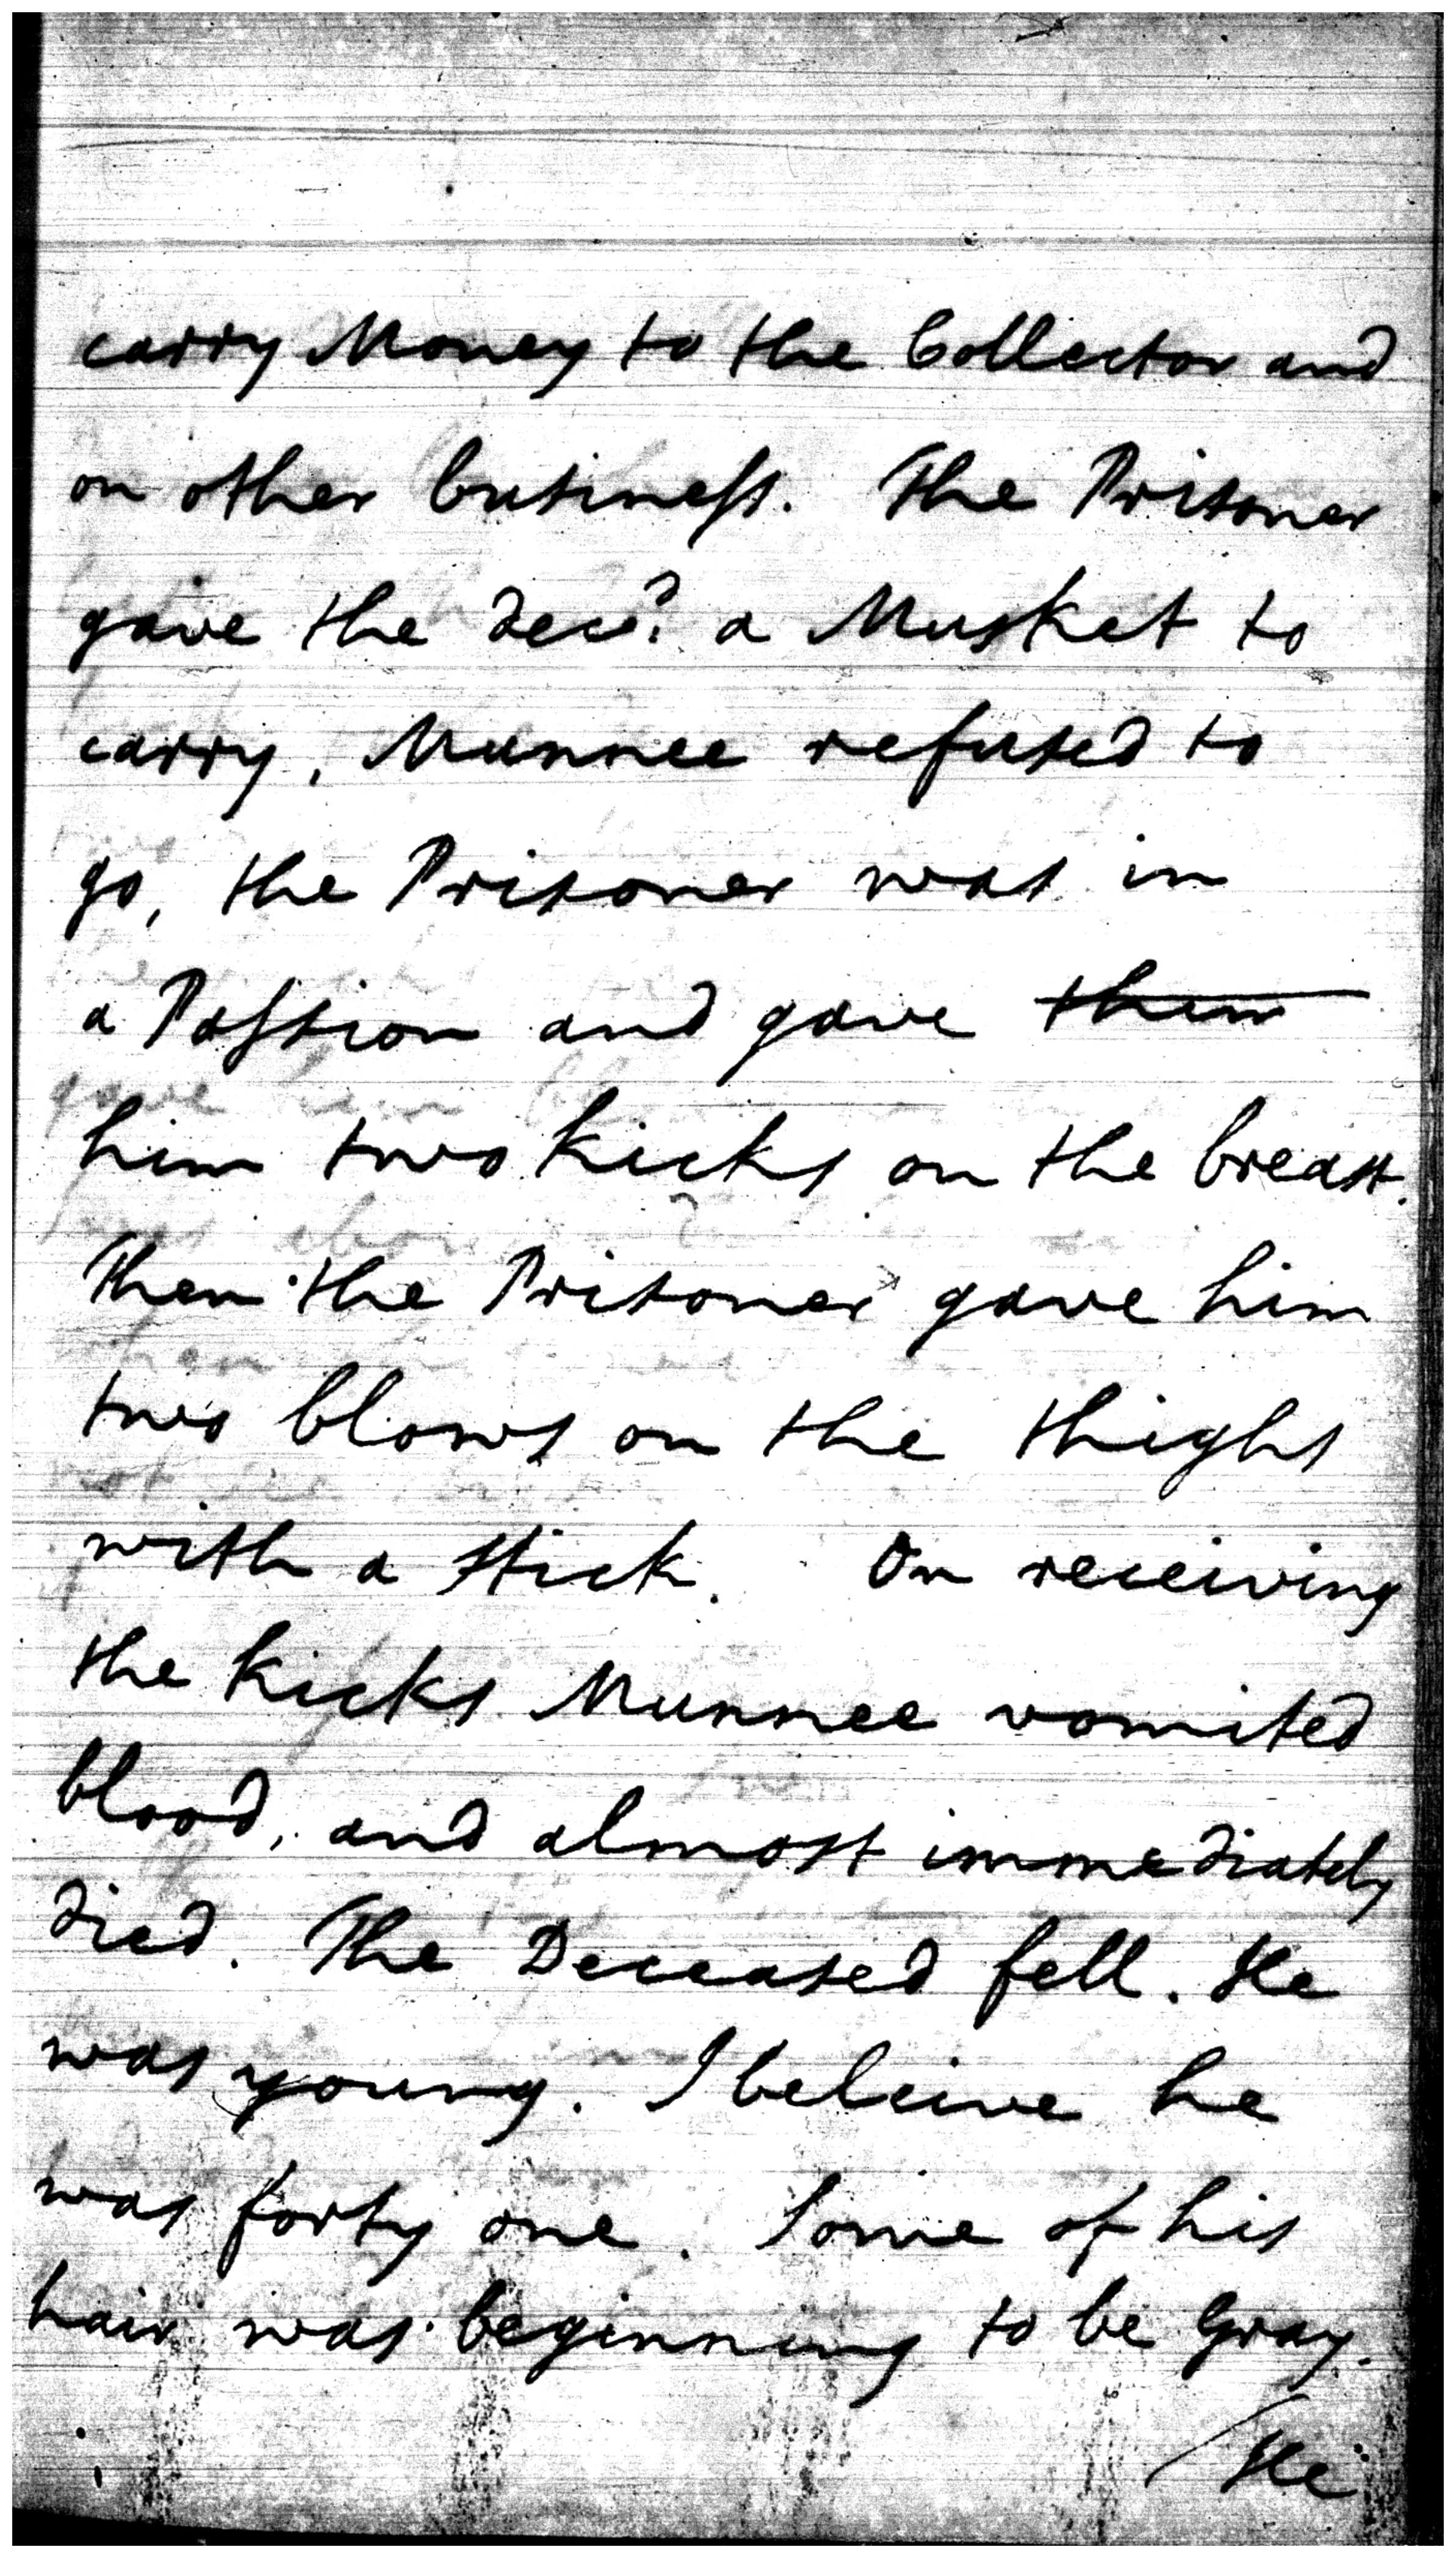 carry Money to the Collector and
on other business. The Prisoner
gave the decd. a Musket to
carry, Munnee refused to
go, the Prisoner was in
a Passion and gave them
him two kicks on the breast.
Then the Prisoner gave him
two blows on the thighs
with a stick. On receiving
the kicks Munnee vomited
blood, and almost immediately
died. The Deceased fell. He
was young. I beleive he
was forty one. Some of his
hair was beginning to be Gray.
/He